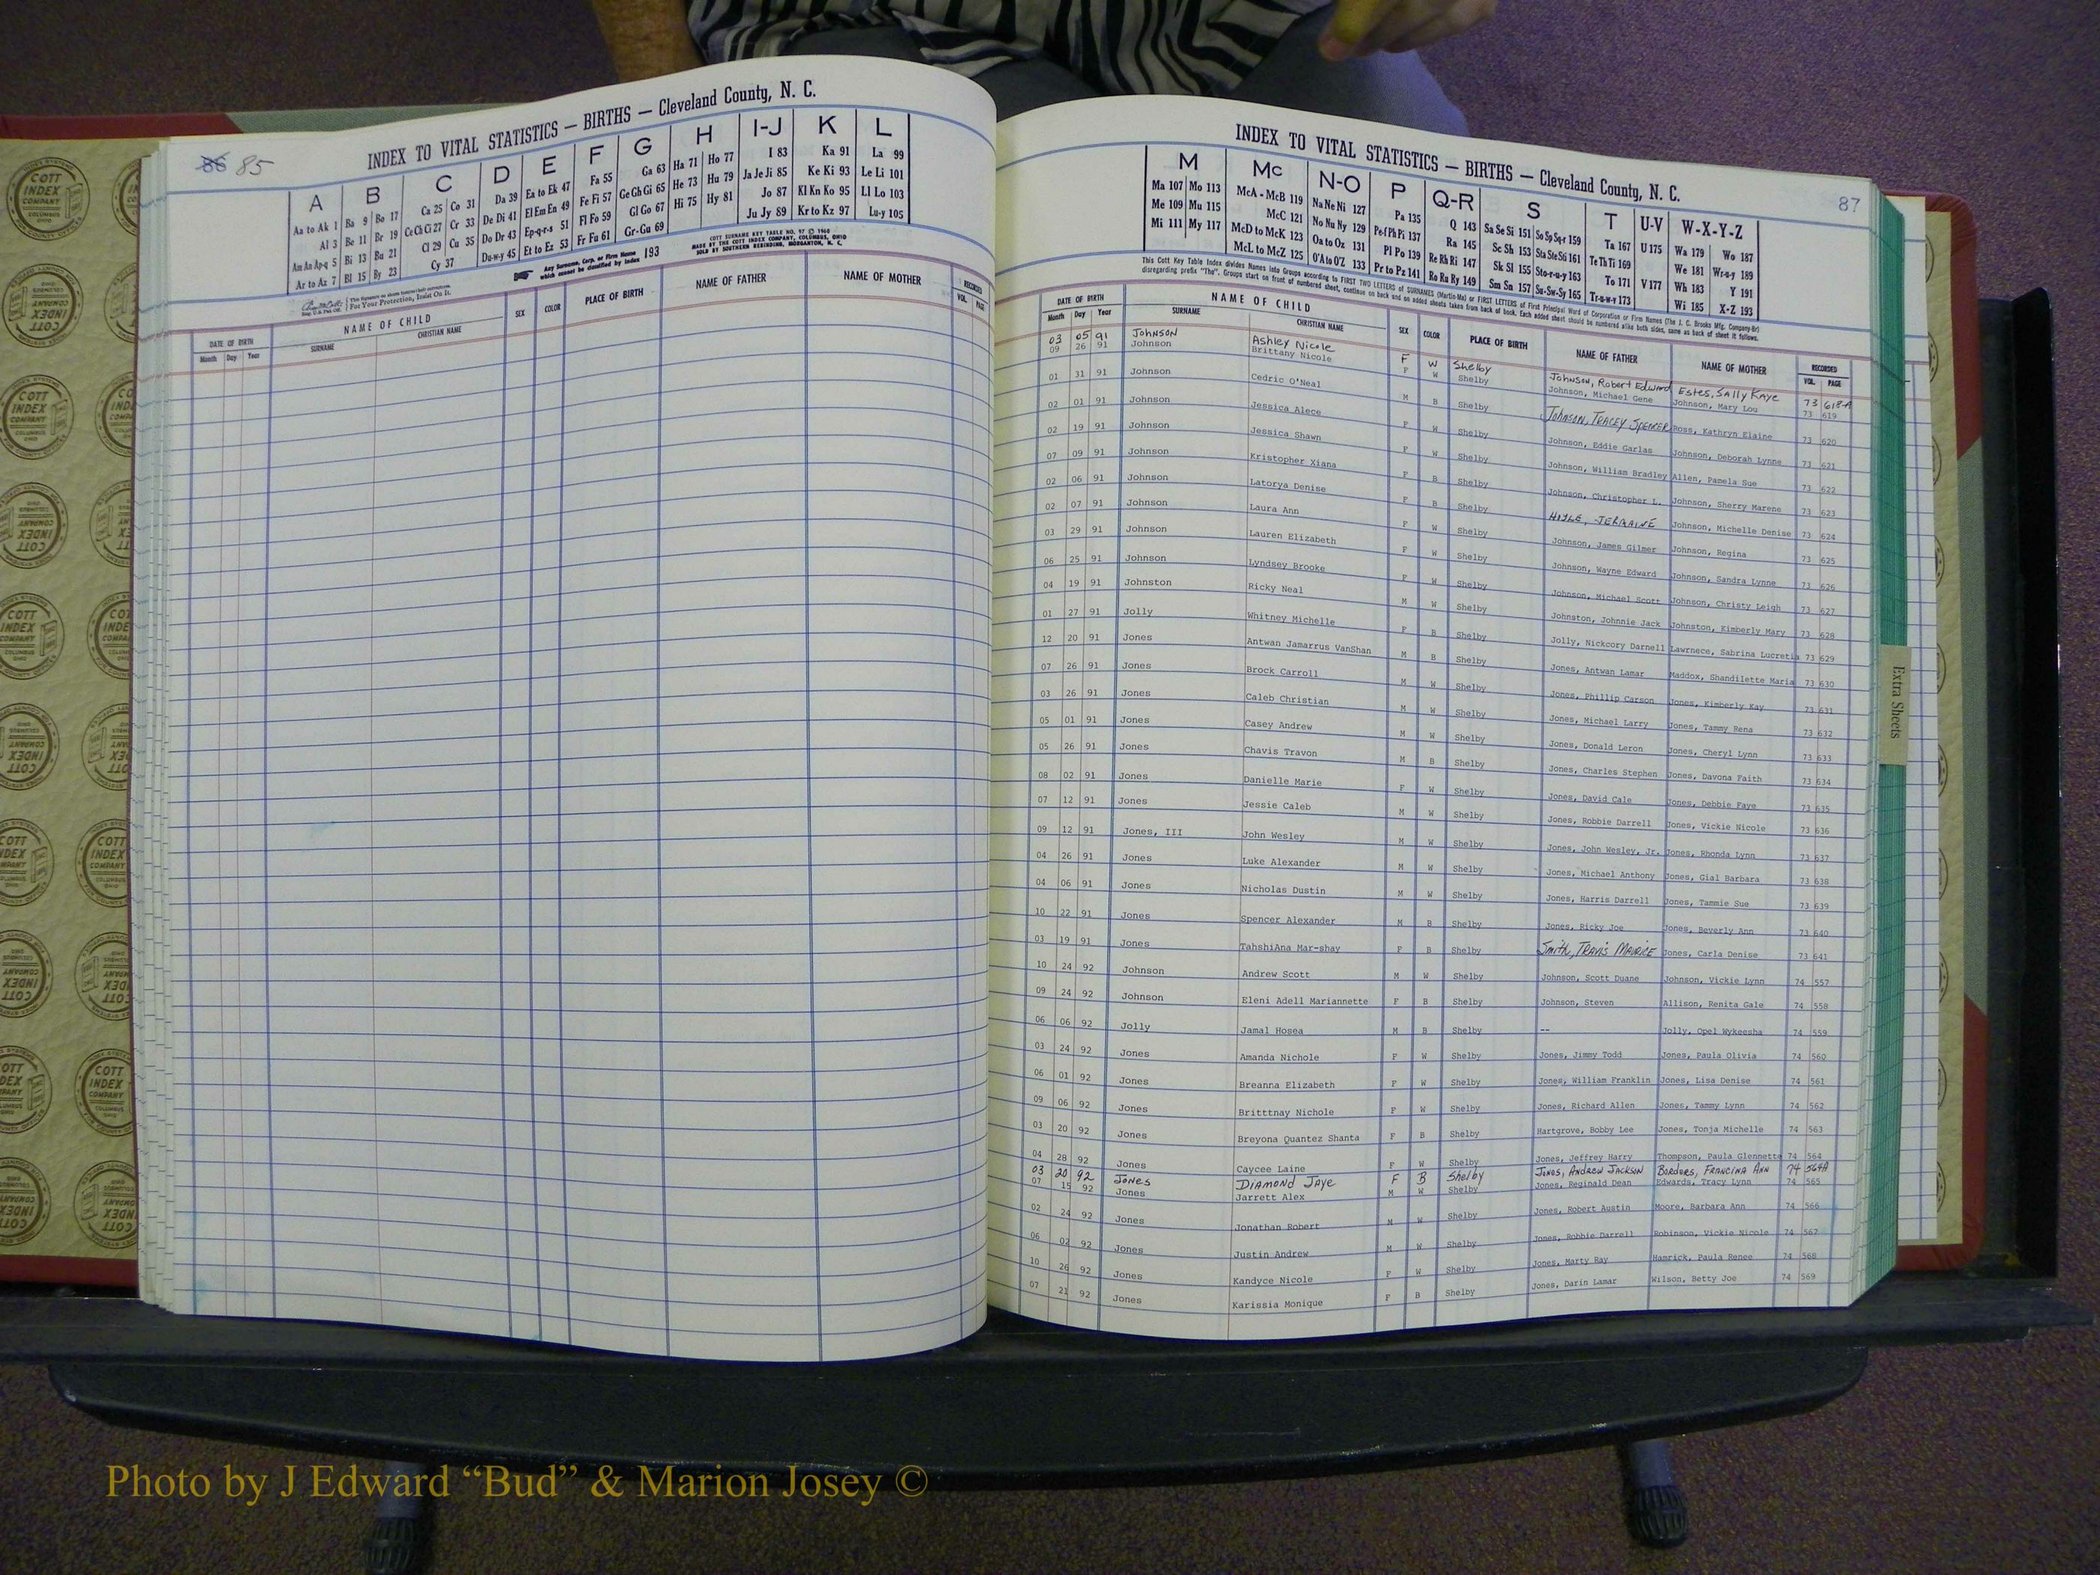 86 85
INDEX TO VITAL STATISTICS — BIRTHS — Cleveland County, N. C.
A B C D E F G H I-J K L
Aa to Ak 1 Ba 9 Bo 17 Ca 25 Co 31 Da 39 Ea to Ek 47 Fa 55 Ga 63 Ha 71 Ho 77 I 83 Ka 91 La 99
Al 3 Be 11 Br 19 Ce Ch Ci 27 Cr 33 De Di 41 El Em En 49 Fe Fi 57 Ge Gh Gi 65 He 73 Hu 79 Ja Je Ji 85 Ke Ki 93 Le Li 101
Am An Ap-q 5 Bi 13 Bu 21 Cl 29 Cu 35 Do Dr 43 Ep-q-r-s 51 Fl Fo 59 Gl Go 67 Hi 75 Hy 81 Jo 87 Kl Kn Ko 95 Ll Lo 103
Ar to Az 7 Bl 15 By 23 Cy 37 Du-w-y 45 Et to Ez 53 Fr Fu 61 Gr-Gu 69 Ju Jy 89 Kr to Kz 97 Lu-y 105
Any Surname, Corp. or Firm Name which cannot be classified by index 193
COTT SURNAME KEY TABLE NO. 97 © 1960
MADE BY THE COTT INDEX COMPANY, COLUMBUS, OHIO
SOLD BY SOUTHERN REBINDING, MORGANTON, N. C.
For Your Protection, Insist On It.
DATE OF BIRTH NAME OF CHILD SEX COLOR PLACE OF BIRTH NAME OF FATHER NAME OF MOTHER RECORDED
Month Day Year SURNAME CHRISTIAN NAME VOL. PAGE
INDEX TO VITAL STATISTICS — BIRTHS — Cleveland County, N. C.
87
M Mc N-O P Q-R S T U-V W-X-Y-Z
Ma 107 Mo 113 McA - McB 119 Na Ne Ni 127 Pa 135 Q 143 Sa Se Si 151 So Sp Sq-r 159 Ta 167 U 175 Wa 179 Wo 187
Me 109 Mu 115 McC 121 No Nu Ny 129 Pe-f Ph Pi 137 Ra 145 Sc Sh 153 Sta Ste Sti 161 Te Th Ti 169 V 177 We 181 Wr-u-y 189
Mi 111 My 117 McD to McK 123 Oa to Oz 131 Pl Po 139 Re Rh Ri 147 Sk Sl 155 Sto-r-u-y 163 To 171 Wh 183 Y 191
McL to McZ 125 O'A to O'Z 133 Pr to Pz 141 Ro Ru Ry 149 Sm Sn 157 Su-Sw-Sy 165 Tr-u-w-y 173 Wi 185 X-Z 193
This Cott Key Table Index divides Names into Groups according to FIRST TWO LETTERS of SURNAMES (Martin-Ma) or FIRST LETTERS of First Principal Word of Corporation or Firm Names (The J. C. Brooks Mfg. Company-Br)
disregarding prefix "The". Groups start on front of numbered sheet, continue on back and on added sheets taken from back of book. Each added sheet should be numbered alike both sides, same as back of sheet it follows.
DATE OF BIRTH NAME OF CHILD SEX COLOR PLACE OF BIRTH NAME OF FATHER NAME OF MOTHER RECORDED
Month Day Year SURNAME CHRISTIAN NAME VOL. PAGE
03 05 91 JOHNSON Ashley Nicole F W Shelby Johnson, Robert Edward Estes, Sally Kaye 73 618-A
09 26 91 Johnson Brittany Nicole F W Shelby Johnson, Michael Gene Johnson, Mary Lou 73 619
01 31 91 Johnson Cedric O'Neal M B Shelby Johnson, Tracey Spencer Ross, Kathryn Elaine 73 620
02 01 91 Johnson Jessica Alece F W Shelby Johnson, Eddie Garlas Johnson, Deborah Lynne 73 621
02 19 91 Johnson Jessica Shawn F W Shelby Johnson, William Bradley Allen, Pamela Sue 73 622
07 09 91 Johnson Kristopher Xiana F B Shelby Johnson, Christopher L. Johnson, Sherry Marene 73 623
02 06 91 Johnson Latorya Denise F B Shelby HOYLE, JERMAINE Johnson, Michelle Denise 73 624
02 07 91 Johnson Laura Ann F W Shelby Johnson, James Gilmer Johnson, Regina 73 625
03 29 91 Johnson Lauren Elizabeth F W Shelby Johnson, Wayne Edward Johnson, Sandra Lynne 73 626
06 25 91 Johnson Lyndsey Brooke F W Shelby Johnson, Michael Scott Johnson, Christy Leigh 73 627
04 19 91 Johnston Ricky Neal M W Shelby Johnston, Johnnie Jack Johnston, Kimberly Mary 73 628
01 27 91 Jolly Whitney Michelle F B Shelby Jolly, Nickcory Darnell Lawrnece, Sabrina Lucretia 73 629
12 20 91 Jones Antwan Jamarrus VanShan M B Shelby Jones, Antwan Lamar Maddox, Shandilette Maria 73 630
07 26 91 Jones Brock Carroll M W Shelby Jones, Phillip Carson Jones, Kimberly Kay 73 631
03 26 91 Jones Caleb Christian M W Shelby Jones, Michael Larry Jones, Tammy Rena 73 632
05 01 91 Jones Casey Andrew M W Shelby Jones, Donald Leron Jones, Cheryl Lynn 73 633
05 26 91 Jones Chavis Travon M B Shelby Jones, Charles Stephen Jones, Davona Faith 73 634
08 02 91 Jones Danielle Marie F W Shelby Jones, David Cale Jones, Debbie Faye 73 635
07 12 91 Jones Jessie Caleb M W Shelby Jones, Robbie Darrell Jones, Vickie Nicole 73 636
09 12 91 Jones, III John Wesley M W Shelby Jones, John Wesley, Jr. Jones, Rhonda Lynn 73 637
04 26 91 Jones Luke Alexander M W Shelby Jones, Michael Anthony Jones, Gial Barbara 73 638
04 06 91 Jones Nicholas Dustin M W Shelby Jones, Harris Darrell Jones, Tammie Sue 73 639
10 22 91 Jones Spencer Alexander M B Shelby Jones, Ricky Joe Jones, Beverly Ann 73 640
03 19 91 Jones TahshiAna Mar-shay F B Shelby Smith, Travis Maurice Jones, Carla Denise 73 641
10 24 92 Johnson Andrew Scott M W Shelby Johnson, Scott Duane Johnson, Vickie Lynn 74 557
09 24 92 Johnson Eleni Adell Mariannette F B Shelby Johnson, Steven Allison, Renita Gale 74 558
06 06 92 Jolly Jamal Hosea M B Shelby -- Jolly, Opel Wykeesha 74 559
03 24 92 Jones Amanda Nichole F W Shelby Jones, Jimmy Todd Jones, Paula Olivia 74 560
06 01 92 Jones Breanna Elizabeth F W Shelby Jones, William Franklin Jones, Lisa Denise 74 561
09 06 92 Jones Britttnay Nichole F W Shelby Jones, Richard Allen Jones, Tammy Lynn 74 562
03 20 92 Jones Breyona Quantez Shanta F B Shelby Hartgrove, Bobby Lee Jones, Tonja Michelle 74 563
04 28 92 Jones Caycee Laine F W Shelby Jones, Jeffrey Harry Thompson, Paula Glennette 74 564
03 20 92 Jones DIAMOND JAYE F B Shelby Jones, ANDREW JACKSON BORDERS, FRANCINA ANN 74 564A
07 15 92 Jones Jarrett Alex M W Shelby Jones, Reginald Dean Edwards, Tracy Lynn 74 565
02 24 92 Jones Jonathan Robert M W Shelby Jones, Robert Austin Moore, Barbara Ann 74 566
06 02 92 Jones Justin Andrew M W Shelby Jones, Robbie Darrell Robinson, Vickie Nicole 74 567
10 26 92 Jones Kandyce Nicole F W Shelby Jones, Marty Ray Hamrick, Paula Renee 74 568
07 21 92 Jones Karissia Monique F B Shelby Jones, Darin Lamar Wilson, Betty Joe 74 569
Extra Sheets
COTT INDEX COMPANY
Photo by J Edward “Bud” & Marion Josey ©